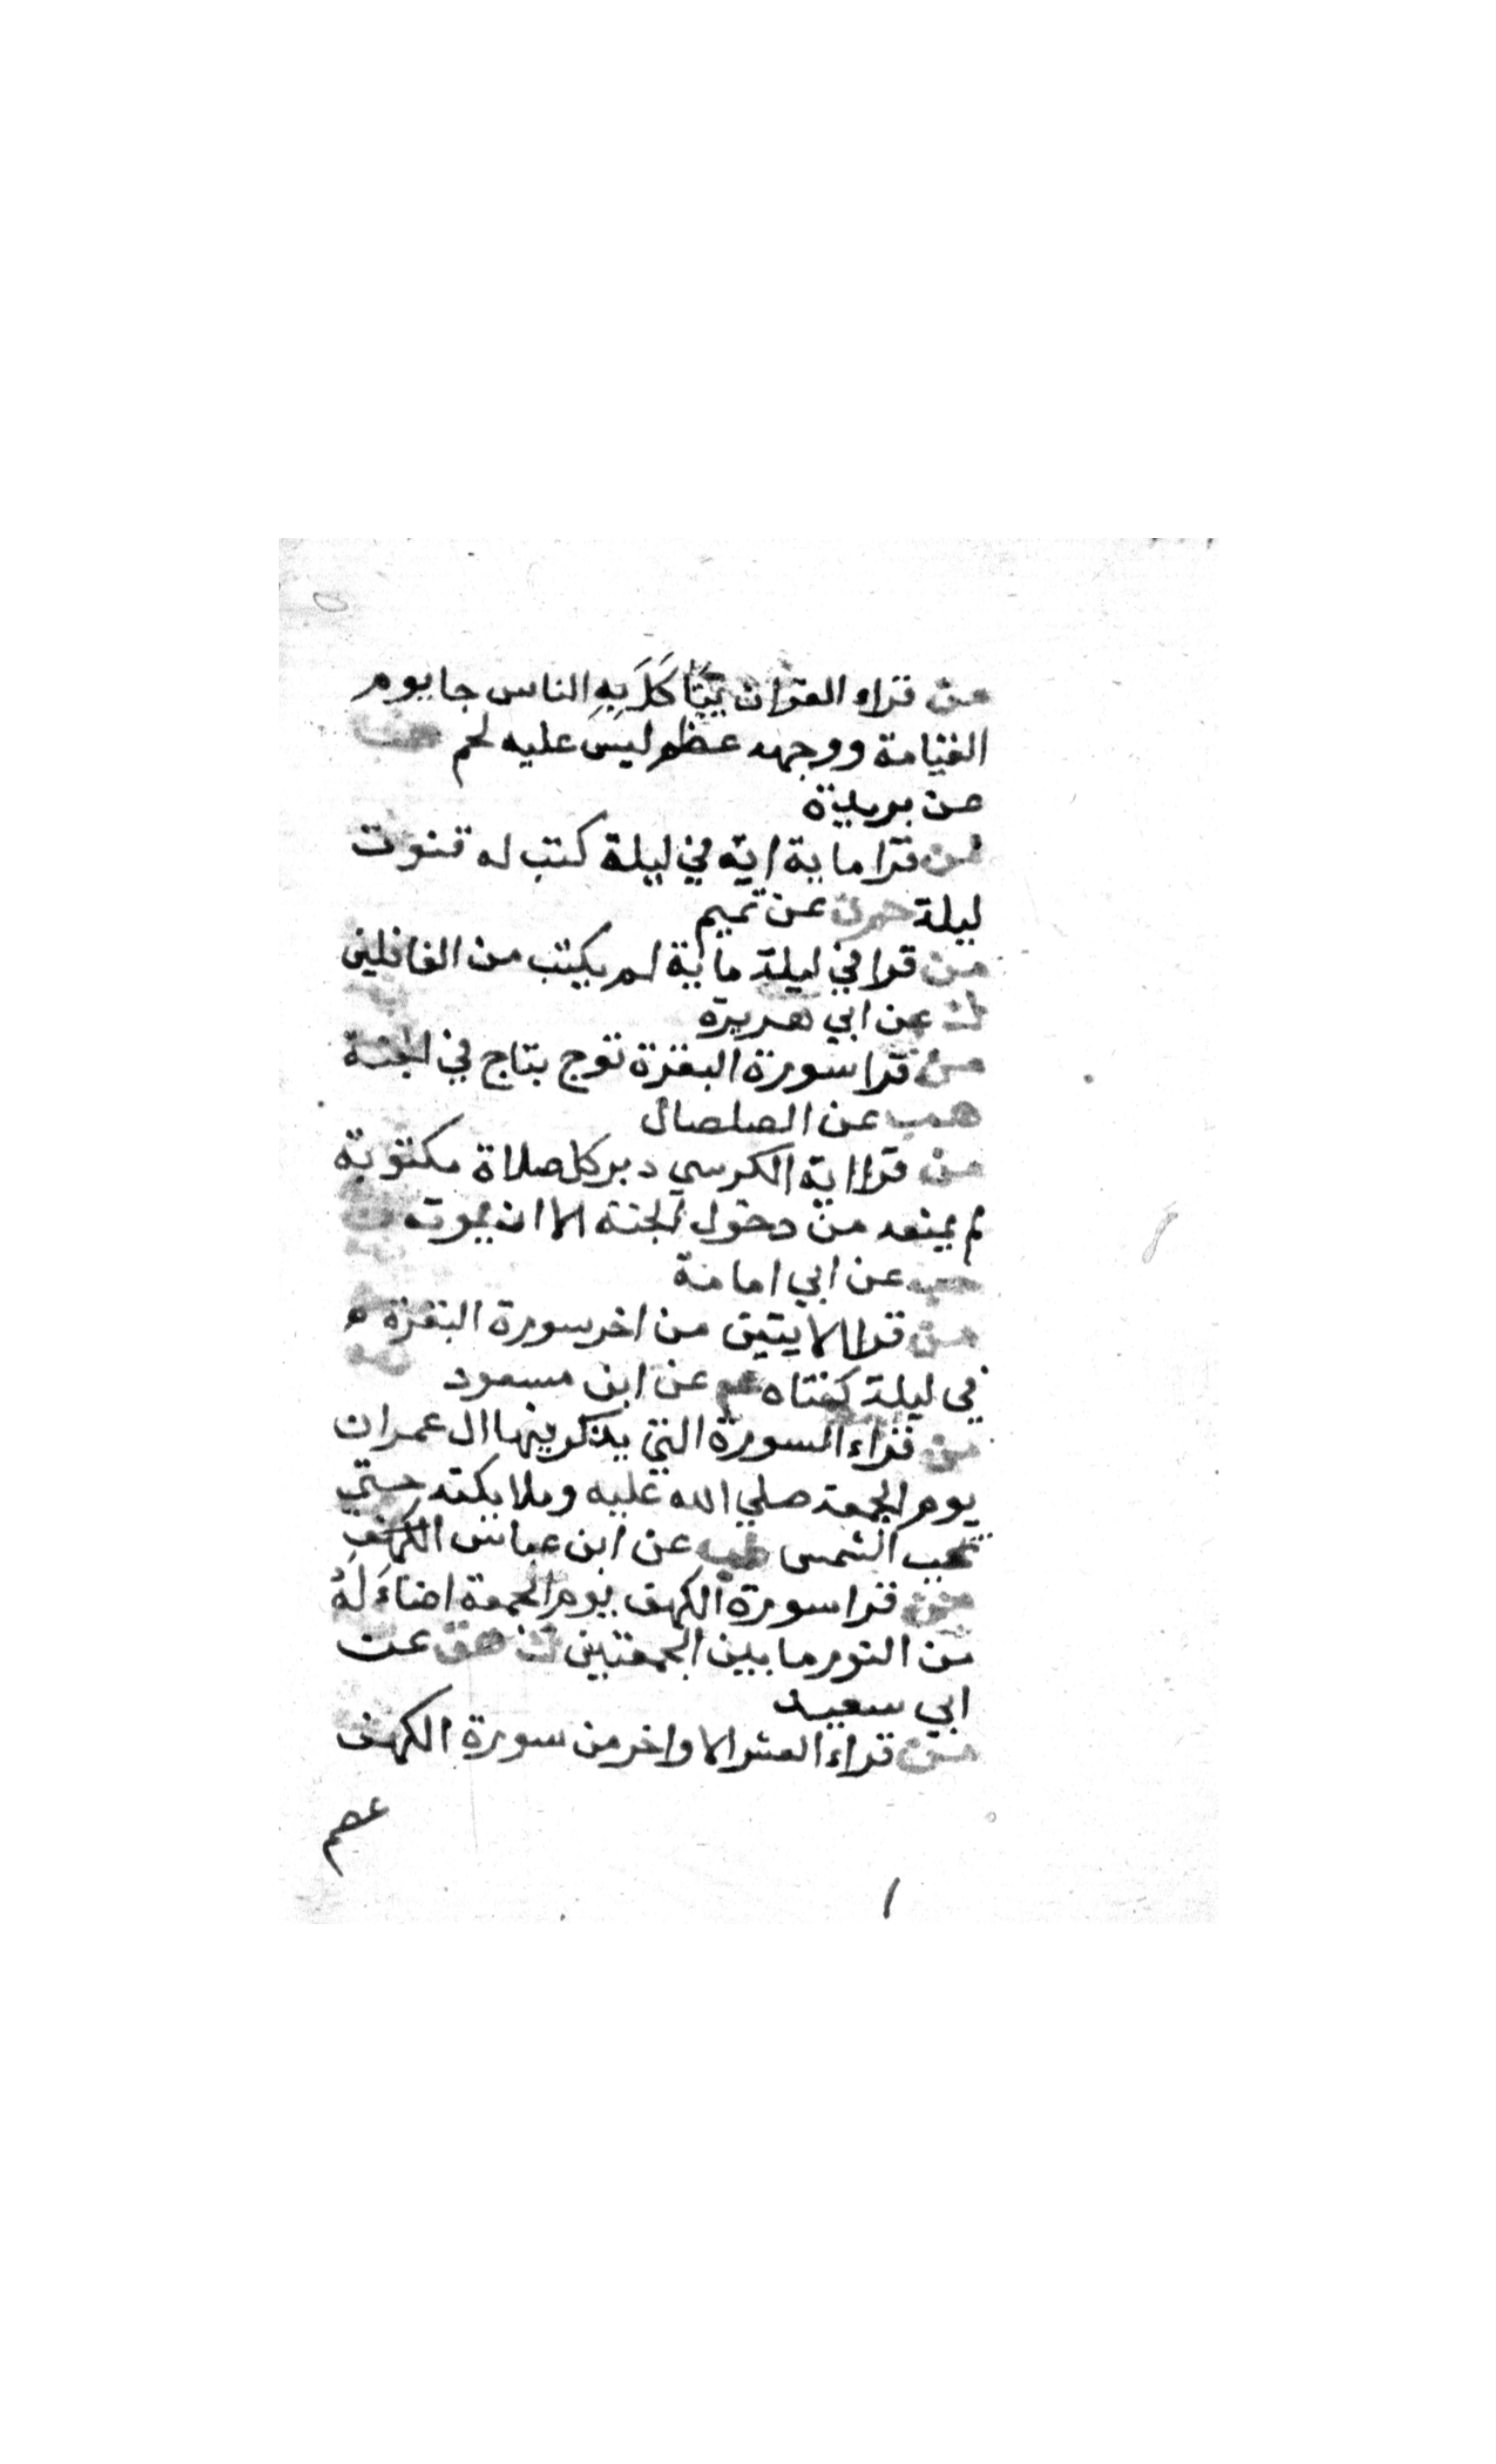 من قراء القران يَتَأكَّلَ بِهِ الناس جا يوم
القيامة ووجهه عظم ليسَ عليه لحم هب
عن بريدة
من قرا ماية اية في ليلة كتب له قنوت
ليلة حم ن عن تميم
من قرا في ليلة ماية لم يكتب من الغافلين
ك عن ابي هريرة
من قرا سورة البقرة توج بتاج في الجنة
هب عن الصلصال
من قرا اية الكرسي دبر كل صلاة مكتوبة
لم يمنعه من دخول الجنة الا ان يموت ن
حب عن ابي امامة
من قرا الايتين من اخر سورة البقرة
في ليلة كفتاه عم عن ابن مسعود
من قراء السورة التي يذكر فيها ال عمران
يوم الجمعة صلي الله عليه وملايكته حتي
تجب الشمس طب عن ابن عباس الكهف
من قرا سورة الكهف يوم الجمعة اضاءَ لَهُ
من النور ما بين الجمعتين ك هق عن
ابي سعيد
من قراء العشر الاواخر من سورة الكهف
عصم